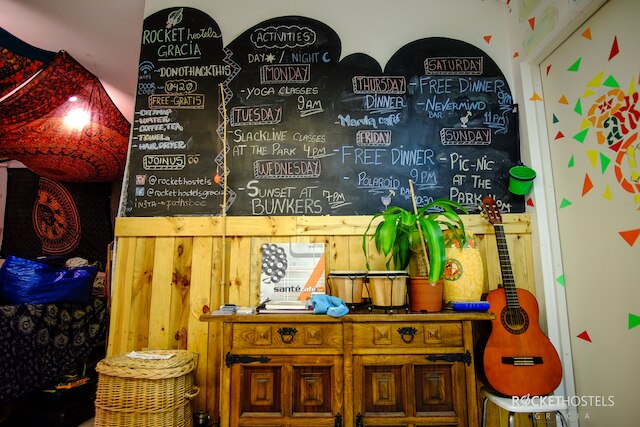 ROCKET hostels
GRACIA
-DONOTHACKTHIS
DOOR
CODE
0420
FREE-GRATIS
-CITYMAP
-WATER
-COFFEE, TEA
-TOWELS
-HAIR DRYER
JOIN US
@rockethostels
@rockethostelsgracia
ACTIVITIES
DAY / NIGHT
MONDAY
-YOGA CLASSES
9AM
TUESDAY
-SLACKLINE CLASSES
AT THE PARK 4PM
WEDNESDAY
-SUNSET AT
BUNKERS 7PM
THURSDAY
DINNER
-Manila café
FRIDAY
-FREE DINNER
9PM
-POLAROID
BAR
SATURDAY
-FREE DINNER
-NEVERMIND
BAR 11PM
SUNDAY
-PIC-NIC
AT THE
PARK
santé
ROCKETHOSTELS
GRACIA